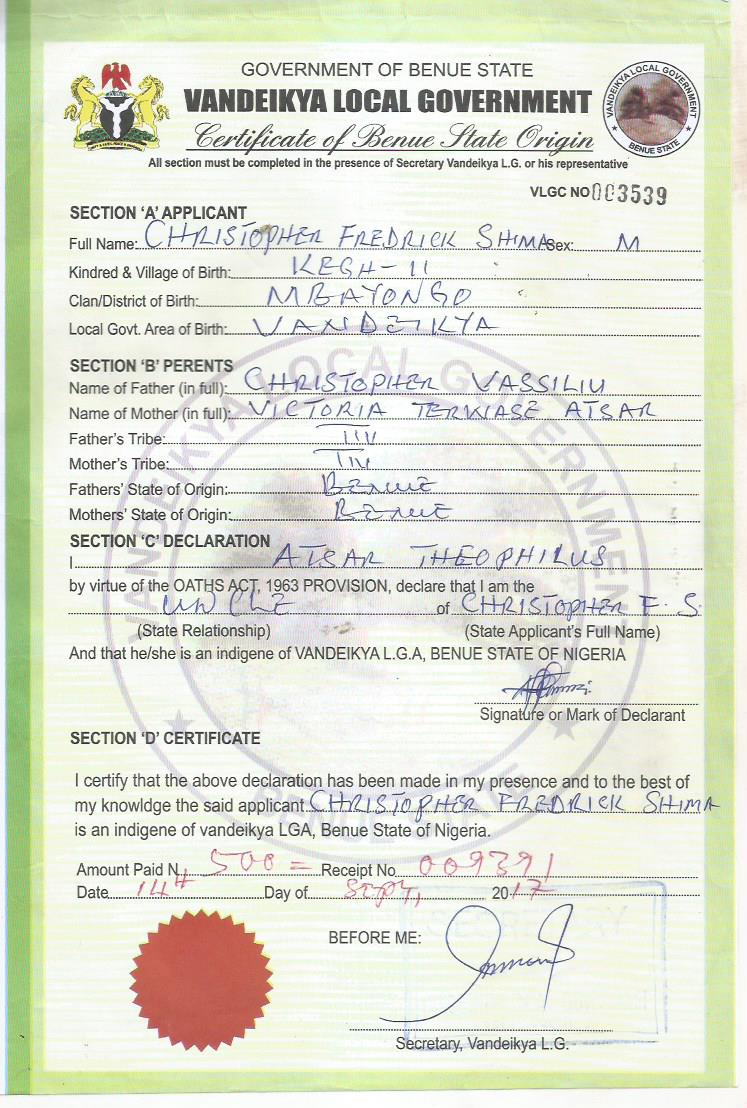 GOVERNMENT OF BENUE STATE
VANDEIKYA LOCAL GOVERNMENT
Certificate of Benue State Origin
All section must be completed in the presence of Secretary Vandeikya L.G. or his representative
VANDEIKYA LOCAL GOVERNMENT
BENUE STATE
VLGC NO 003539
SECTION 'A' APPLICANT
Full Name: CHRISTOPHER FREDRICK SHIMA Sex: M
Kindred & Village of Birth: KEGH-II
Clan/District of Birth: MBAYONGO
Local Govt. Area of Birth: VANDEIKYA
SECTION 'B' PERENTS
Name of Father (in full): CHRISTOPHER VASSILIU
Name of Mother (in full): VICTORIA TERWASE ATSAR
Father's Tribe: TIV
Mother's Tribe: TIV
Fathers' State of Origin: BENUE
Mothers' State of Origin: BENUE
SECTION 'C' DECLARATION
I ATSAR THEOPHILUS
by virtue of the OATHS ACT, 1963 PROVISION, declare that I am the
UNCLE of CHRISTOPHER F. S.
(State Relationship) (State Applicant's Full Name)
And that he/she is an indigene of VANDEIKYA L.G.A, BENUE STATE OF NIGERIA
Signature or Mark of Declarant
SECTION 'D' CERTIFICATE
I certify that the above declaration has been made in my presence and to the best of
my knowldge the said applicant CHRISTOPHER FREDRICK SHIMA
is an indigene of vandeikya LGA, Benue State of Nigeria.
Amount Paid N 500= Receipt No 009391
Date 14th Day of Sept, 2017
BEFORE ME:
Secretary, Vandeikya L.G.
VANDEIKYA LOCAL GOVERNMENT
BENUE STATE